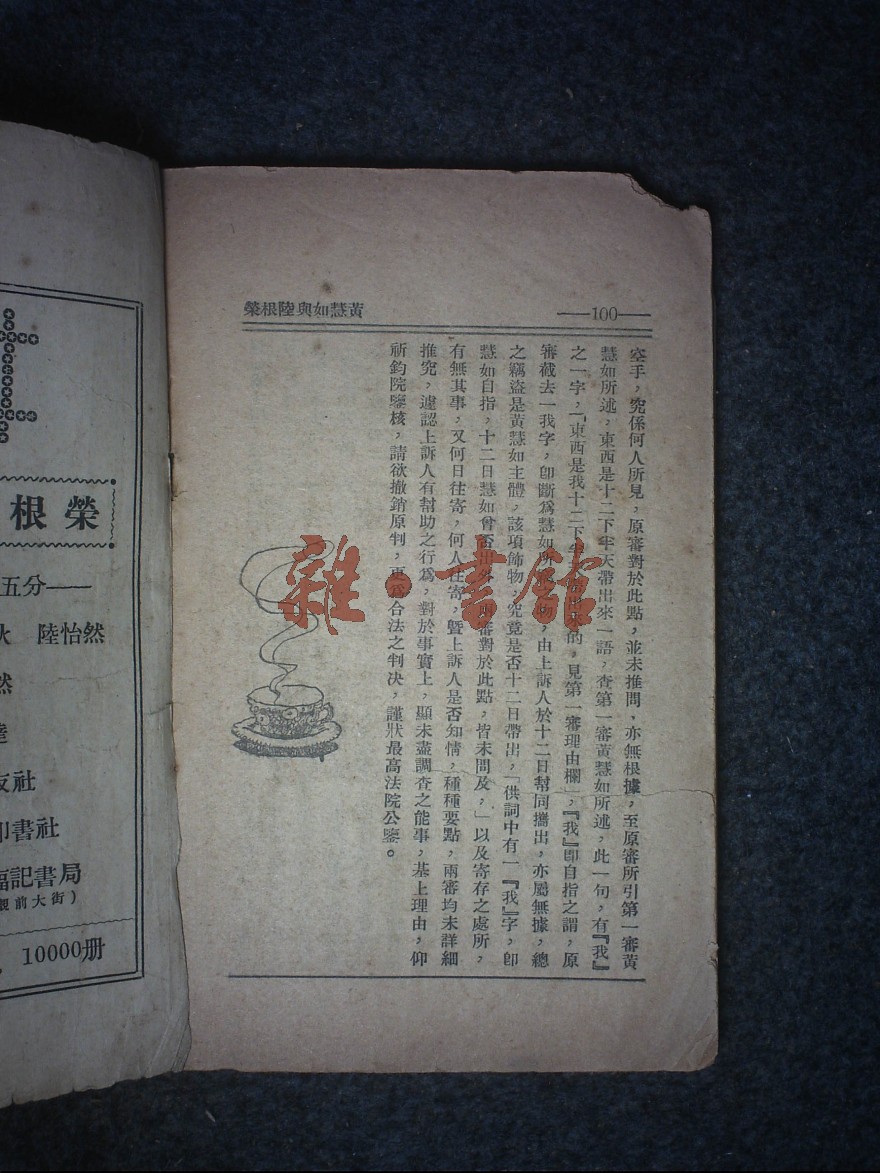 黃慧如與陸根榮
—100—
空手，究係何人所見，原審對於此點，並未推問，亦無根據，至原審所引第一審黃
慧如所述，東西是十二下半天帶出來一語，查第一審黃慧如所述，此一句，有『我』
之一字，「東西是我十二下半 帶出來的，見第一審理由欄」，『我』即自指之謂，原
審截去一我字，即斷爲慧如所 物，由上訴人於十二日幫同攜出，亦屬無據，總
之竊盜是黃慧如主體，該項飾物，究竟是否十二日帶出，「供詞中有一『我』字，即
慧如自指，十二日慧如曾否出外，原審對於此點，皆未問及，」以及寄存之處所，
有無其事，又何日往寄，何人往寄，曁上訴人是否知情，種種要點，兩審均未詳細
推究，遽認上訴人有幫助之行爲，對於事實上，顯未盡調查之能事，基上理由，仰
祈鈞院鑒核，請欲撤銷原判，更爲合法之判决，謹狀最高法院公鑒。
雜·書館
根榮
五分——
陸怡然
然
友社
印書社
記書局
觀前大街）
10000册